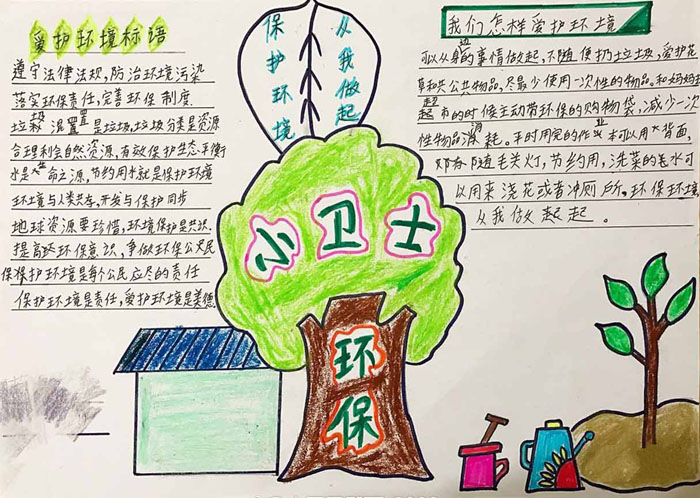 爱护环境标语
遵守法律法规,防治环境污染
落实环保责任,完善环保制度
垃圾混置是垃圾,垃圾分类是资源
合理利会自然资源,有效保护生态平衡
水是生命之源,节约用水就是保护环境
环境与人类共存,开发与保护同步
地球资源要珍惜,环境保护是共识
提高环保意识,争做环保公民
保护环境是每个公民应尽的责任
保护环境是责任,爱护环境是美德
保护环境
从我做起
小卫士
环保
我们怎样爱护环境
可以从身边的事情做起,不随便扔垃圾,爱护花
草和共公共物品,尽最少使用一次性的物品。和妈妈
超市的时候主动带环保的购物袋,减少一次
性物品消耗。平时用完的作业本可以用背面,
随关灯,节约用,洗菜的水可
以用来浇花或者冲厕所。环保环境
从我做起起。